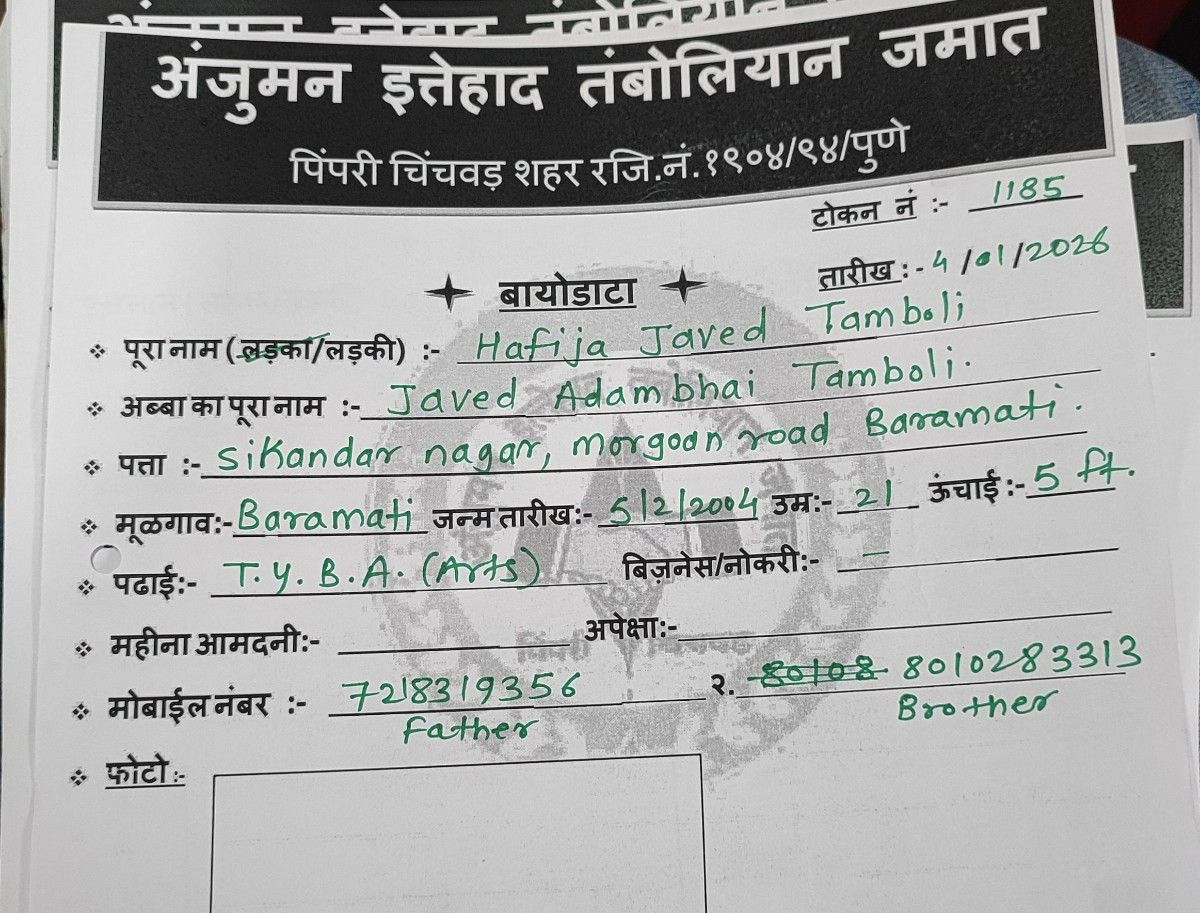 अंजुमन इत्तेहाद तंबोलियान जमात
पिंपरी चिंचवड़ शहर रजि.नं.१९०४/९४/पुणे
टोकन नं :- 1185
तारीख :- 4/01/2026
बायोडाटा
पूरा नाम (लड़का/लड़की) :- Hafija Javed Tamboli
अब्बा का पूरा नाम :- Javed Adambhai Tamboli.
पत्ता :- Sikandar nagar, morgoan road Baramati.
मूळगाव:- Baramati जन्म तारीख:- 5/2/2004 उम्र:- 21 ऊंचाई:- 5 ft.
पढाई:- T.Y.B.A. (Arts) बिज़नेस/नोकरी:- —
महीना आमदनी:- अपेक्षा:-
मोबाईल नंबर :- 7218319356 २. 80108 8010283313
Father Brother
फोटो:-